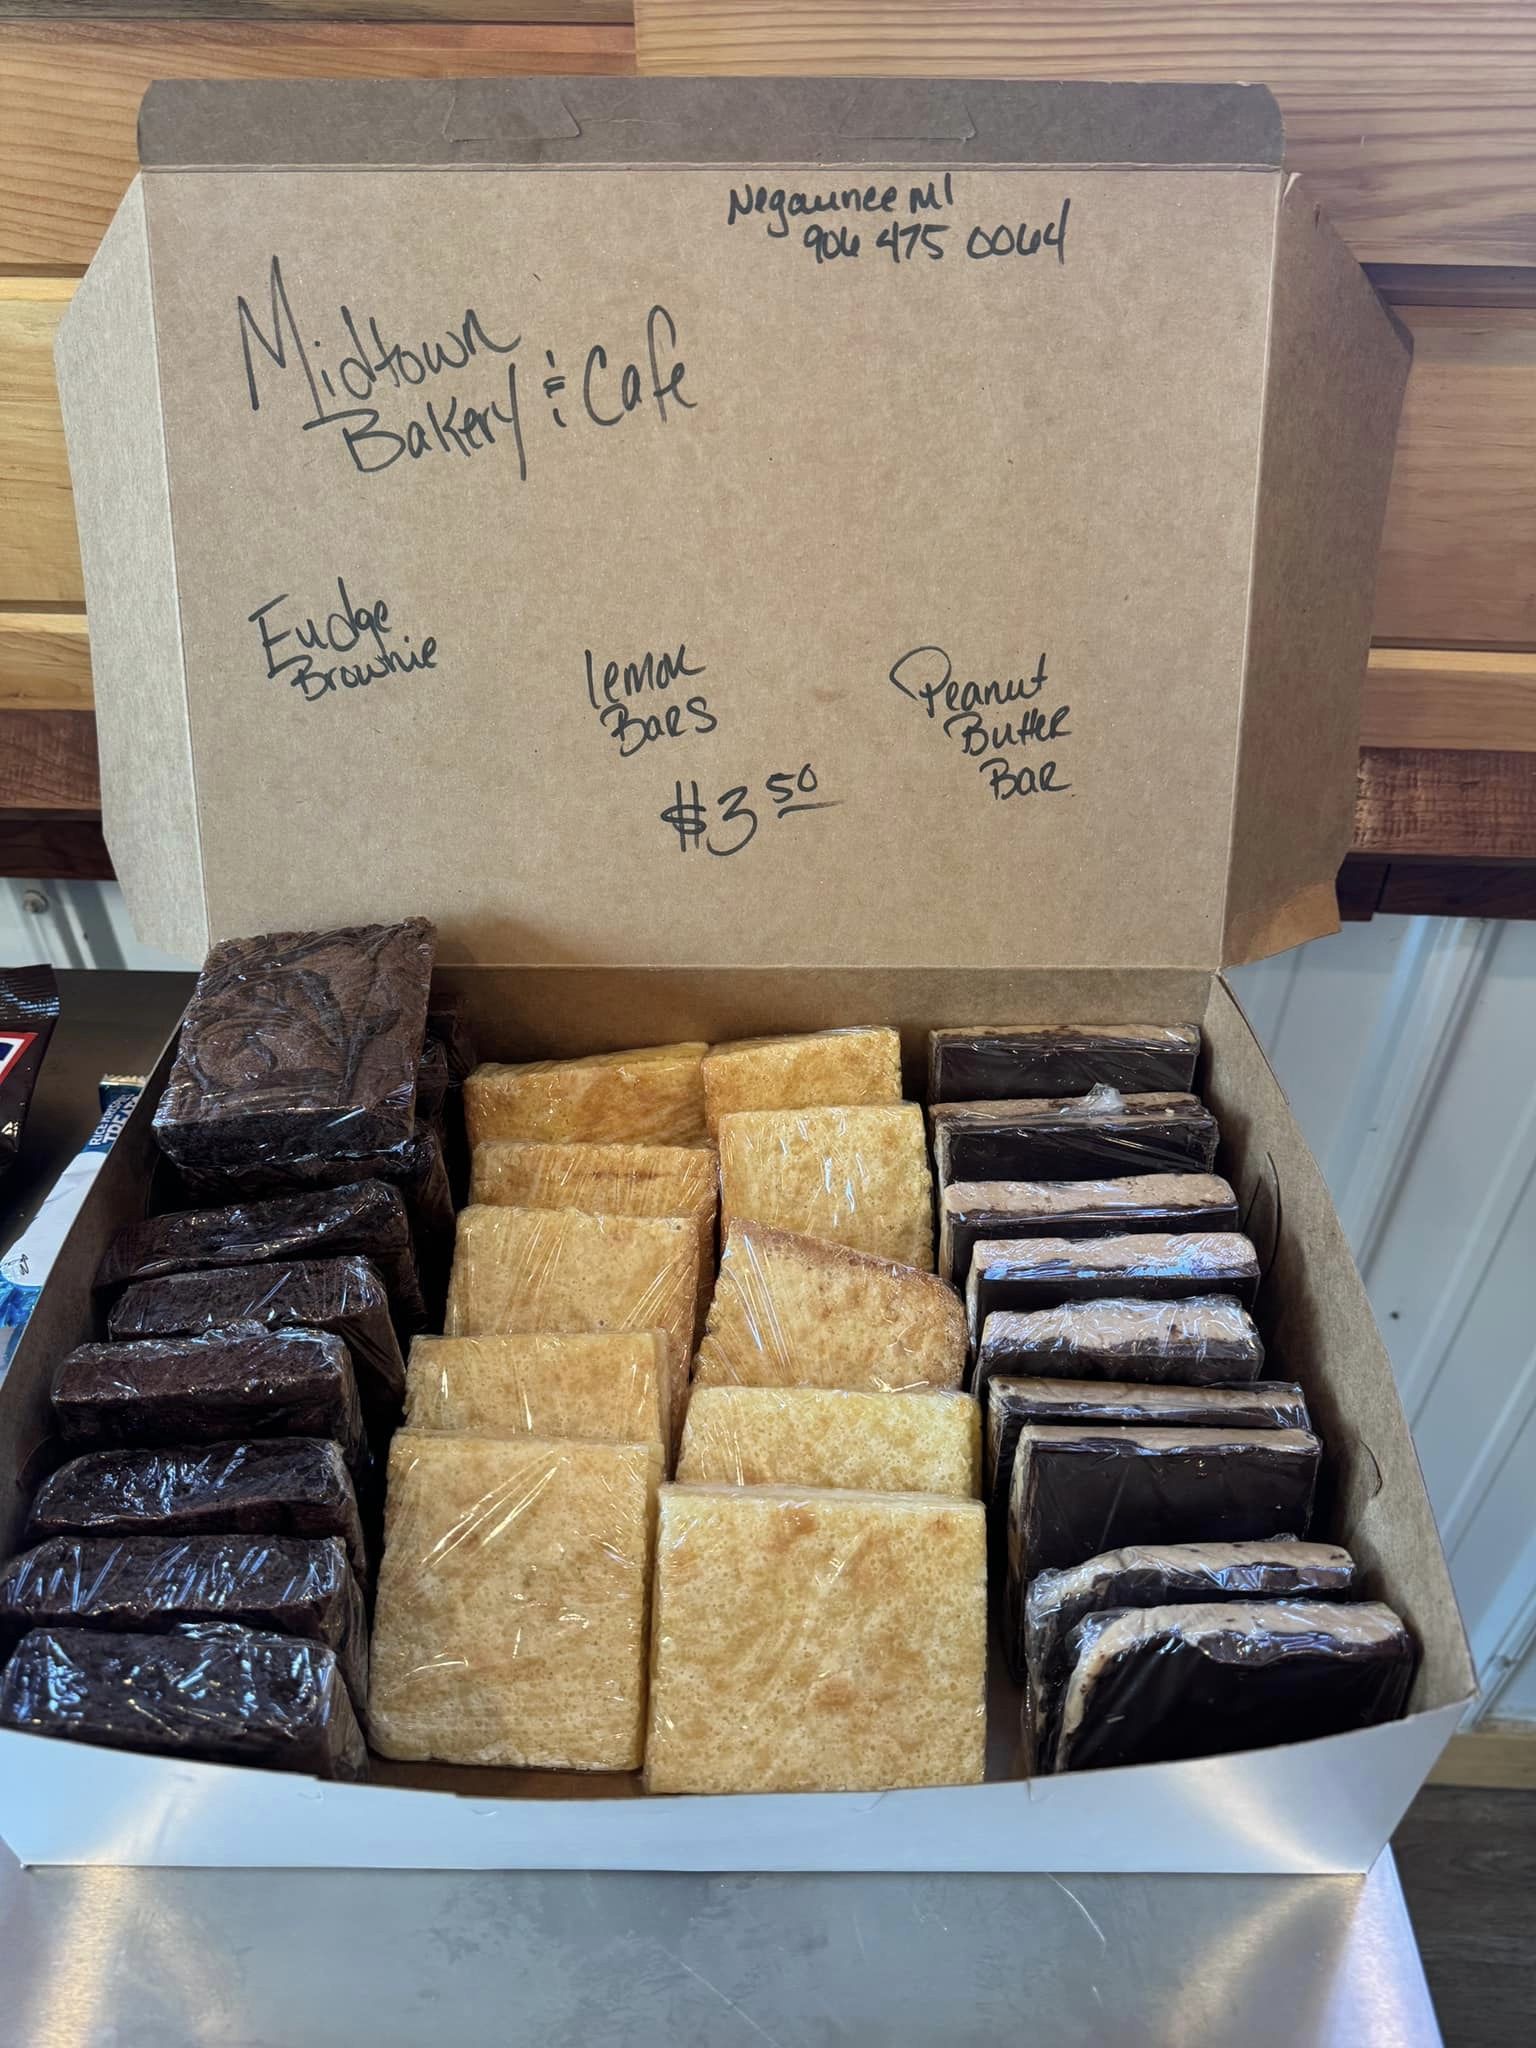 Negaunee MI
906 475 0064
Midtown
Bakery & Cafe
Fudge
Brownie
lemon
Bars
Peanut
Butter
Bar
$3.50
RICE KRISPIES
TREATS